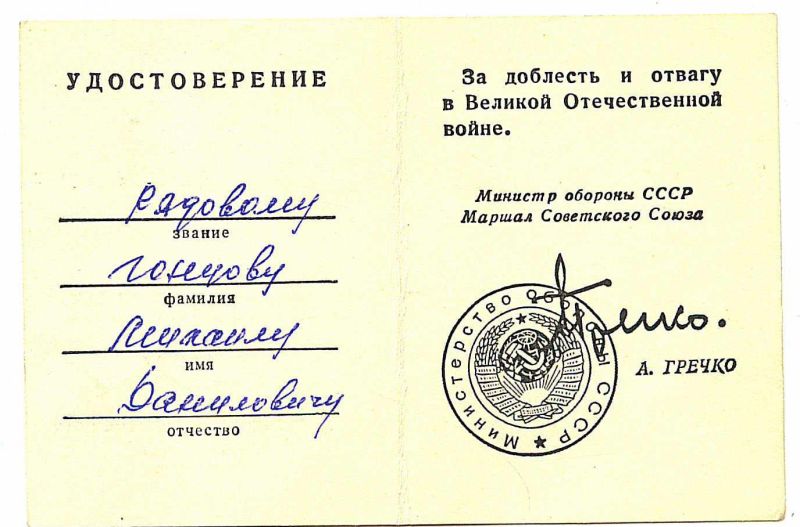 УДОСТОВЕРЕНИЕ
Рядовому
звание
Гонцову
фамилия
Михаилу
имя
Даниловичу
отчество
За доблесть и отвагу
в Великой Отечественной
войне.
Министр обороны СССР
Маршал Советского Союза
Министерство Обороны СССР
Гречко.
А. ГРЕЧКО